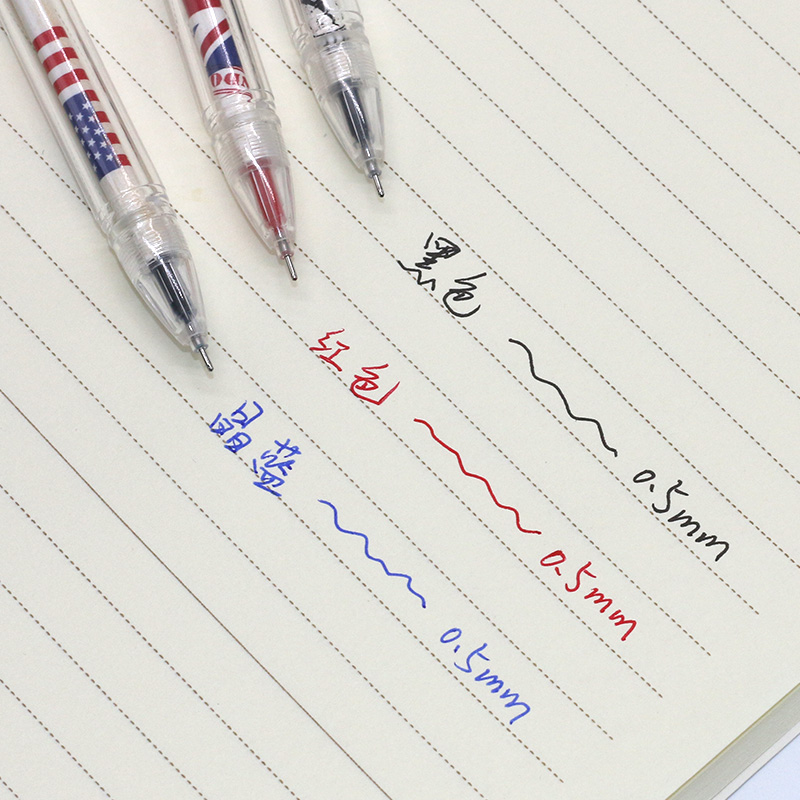 黑色 0.5mm
红色 0.5mm
晶蓝 0.5mm